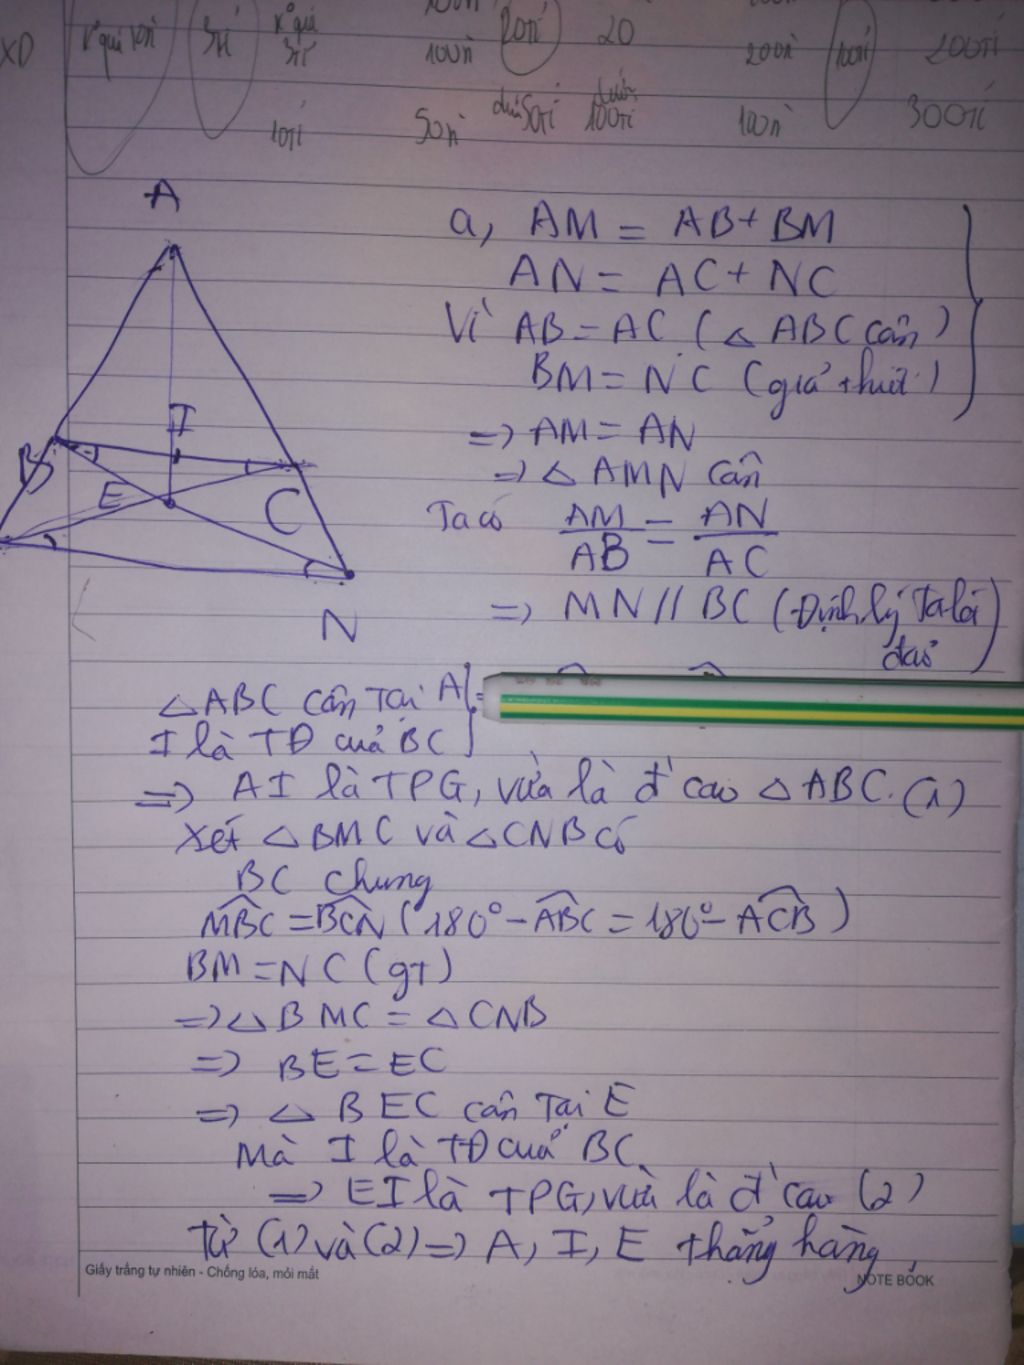 XD
3tỉ
100n
20tỉ
20
200n
100n
200tỉ
10tỉ
50n
50tỉ
100tỉ
100n
300tỉ
A
B
I
E
C
N
a, AM = AB + BM
AN = AC + NC
Vì AB = AC (△ ABC cân)
BM = NC (giả thiết)
=> AM = AN
=> △ AMN cân
Ta có AM/AB = AN/AC
=> MN // BC (Định lý Ta lét
đảo)
△ABC cân tại A
I là TĐ của BC
=> AI là TPG, vừa là đ' cao △ ABC. (1)
Xét △ BMC và △CNB có
BC chung
MBC = BCN (180° - ABC = 180° - ACB)
BM = NC (gt)
=> △ BMC = △ CNB
=> BE = EC
=> △ BEC cân tại E
Mà I là TĐ của BC
=> EI là TPG, vừa là đ' cao (2)
Từ (1) và (2) => A, I, E thẳng hàng
Giấy trắng tự nhiên - Chống lóa, mỏi mắt
NOTE BOOK